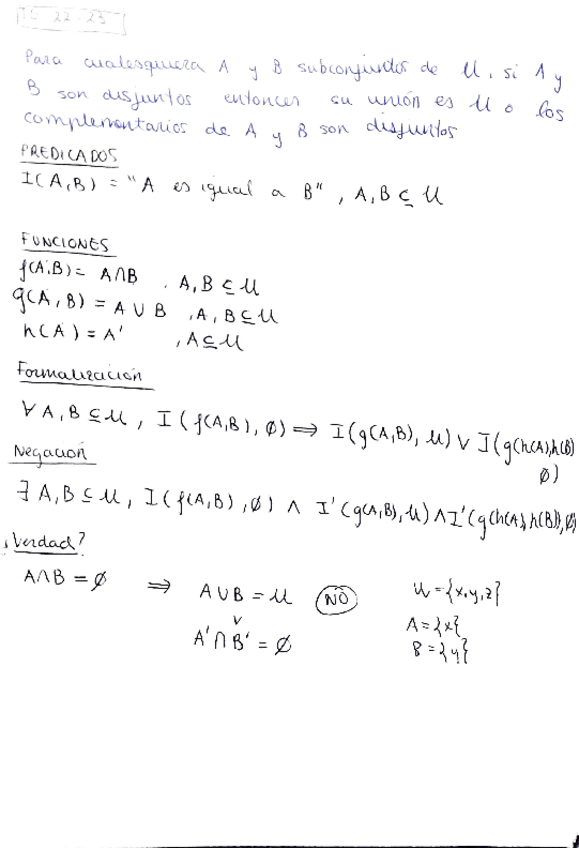 TG 22-23
Para cualesquiera A y B subconjuntos de U, si A y
B son disjuntos entonces su unión es U o los
complementarios de A y B son disjuntos
PREDICADOS
I(A,B) = "A es igual a B", A,B ⊆ U
FUNCIONES
f(A,B) = A∩B , A,B ⊆ U
g(A,B) = A ∪ B , A, B ⊆ U
h(A) = A' , A ⊆ U
Formalización
∀ A,B ⊆ U, I(f(A,B), ∅) ⟹ I(g(A,B), U) ∨ I(g(h(A),h(B)
∅)
Negación
∃ A,B ⊆ U, I(f(A,B), ∅) ∧ I'(g(A,B), U) ∧ I'(g(h(A),h(B)),∅)
¿Verdad?
A∩B = ∅ ⟹ A∪B = U NO U={x,y,z}
∨ A={x{
A'∩B' = ∅ B={y}